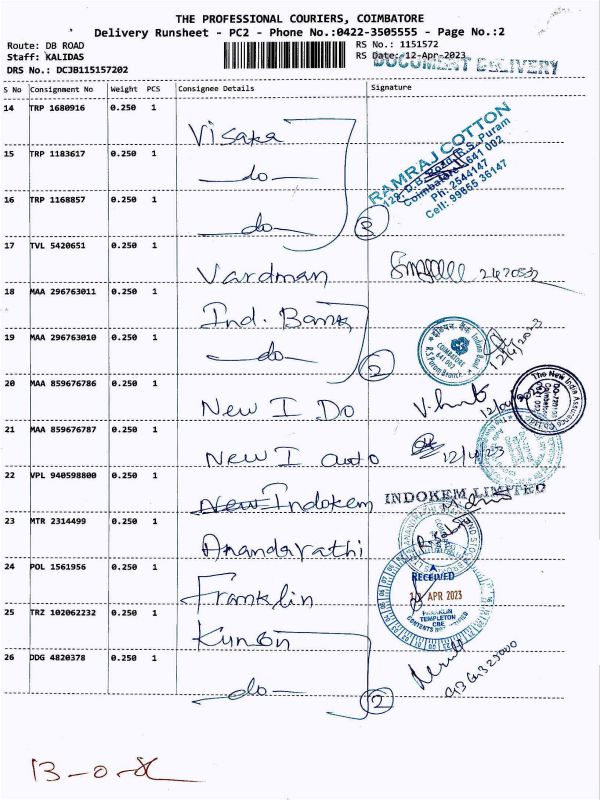 THE PROFESSIONAL COURIERS, COIMBATORE
Delivery Runsheet - PC2 - Phone No.:0422-3505555 - Page No.:2
Route: DB ROAD
Staff: KALIDAS
DRS No.: DCJB115157202
RS No.: 1151572
RS Date: 12-Apr-2023
DOCUMENT DELIVERY
S No Consignment No Weight PCS Consignee Details Signature
14 TRP 1680916 0.250 1 Visaka
15 TRP 1183617 0.250 1 do
16 TRP 1168857 0.250 1 do 3
RAMRAJ COTTON
Coimbatore - 641 002
Ph: 2544147
Cell: 99655 36147
17 TVL 5420651 0.250 1 Vardman
18 MAA 296763011 0.250 1 Ind. Bank
19 MAA 296763010 0.250 1 do 2
इंडियन बैंक Indian Bank
COIMBATORE
641 002
R.S. Puram Branch
12/4/2023
20 MAA 859676786 0.250 1 New I Do
The New India Assurance Co.
21 MAA 859676787 0.250 1 New I auto 12/4/23
22 VPL 940598800 0.250 1 New Indokem
INDOKEM LIMITED
23 MTR 2314499 0.250 1 Anandarathi
24 POL 1561956 0.250 1 Franklin
RECEIVED
APR 2023
FRANKLIN
TEMPLETON
CBE
CONTENTS NOT VERIFIED
25 TRZ 102062232 0.250 1
26 DDG 4820378 0.250 1 do 2